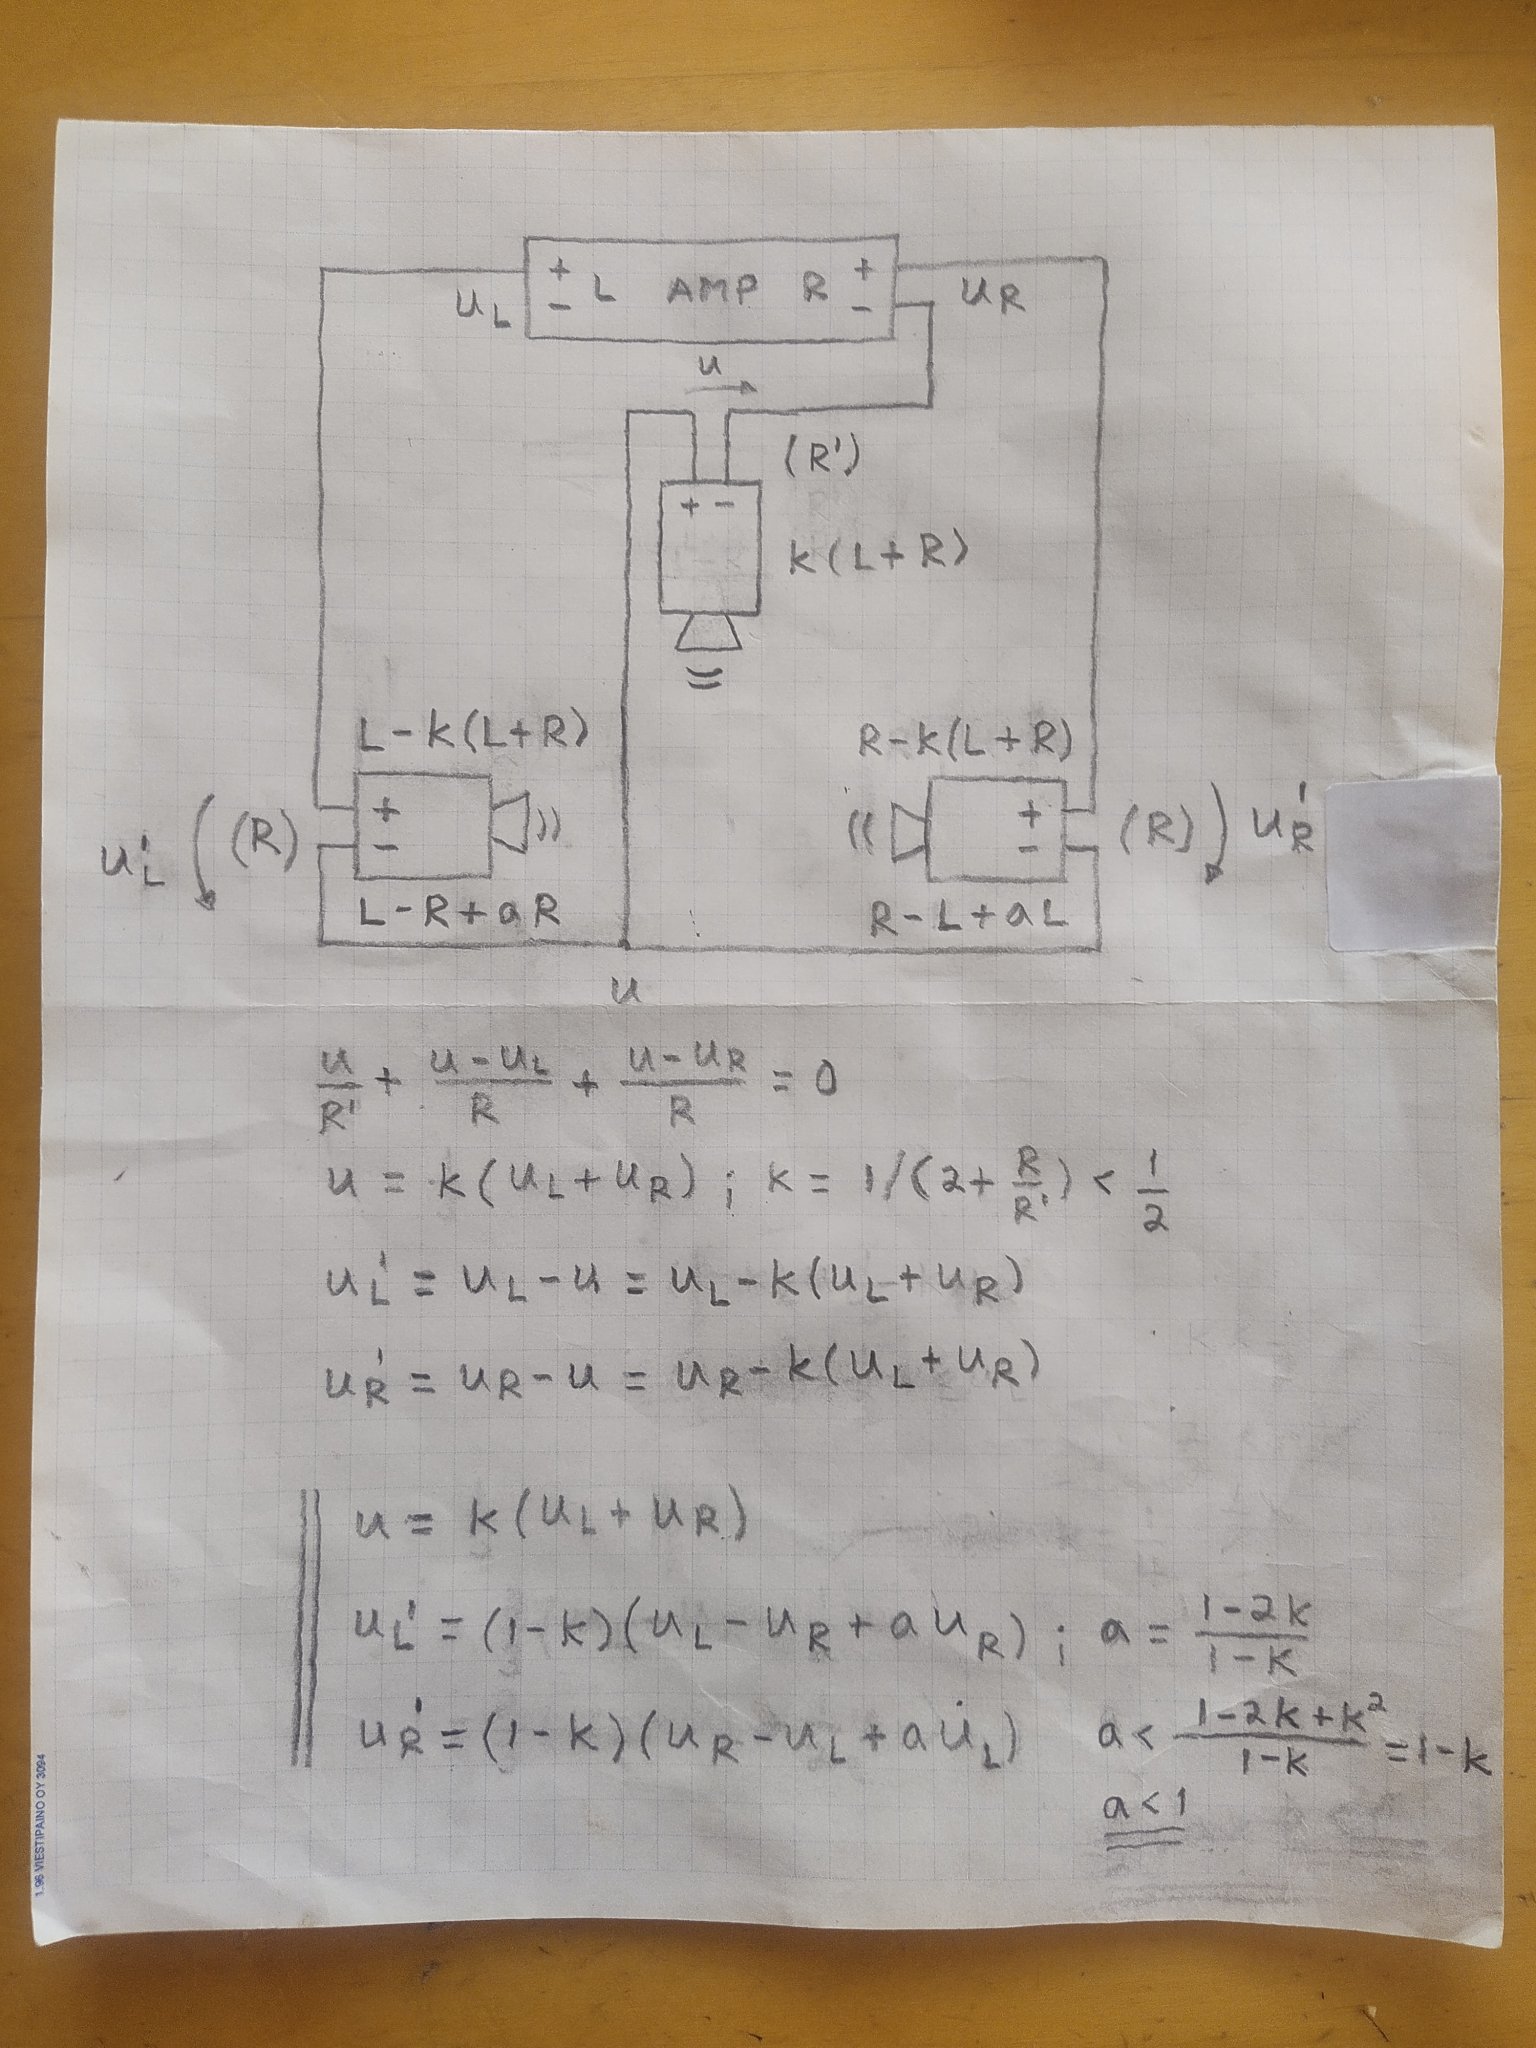 + L AMP R +
- -
u_L
u_R
u
(R')
+ -
k(L+R)
L-k(L+R)
R-k(L+R)
u_L' (R) + -
+ - (R) u_R'
L-R+aR
R-L+aL
u
u/R' + (u-u_L)/R + (u-u_R)/R = 0
u = k(u_L+u_R); k = 1/(2+R/R') < 1/2
u_L' = u_L-u = u_L-k(u_L+u_R)
u_R' = u_R-u = u_R-k(u_L+u_R)
u = k(u_L+u_R)
u_L' = (1-k)(u_L-u_R+au_R); a = (1-2k)/(1-k)
u_R' = (1-k)(u_R-u_L+au_L) a < (1-2k+k²)/(1-k) = 1-k
a<1
1.96 VIESTIPAINO OY 3094